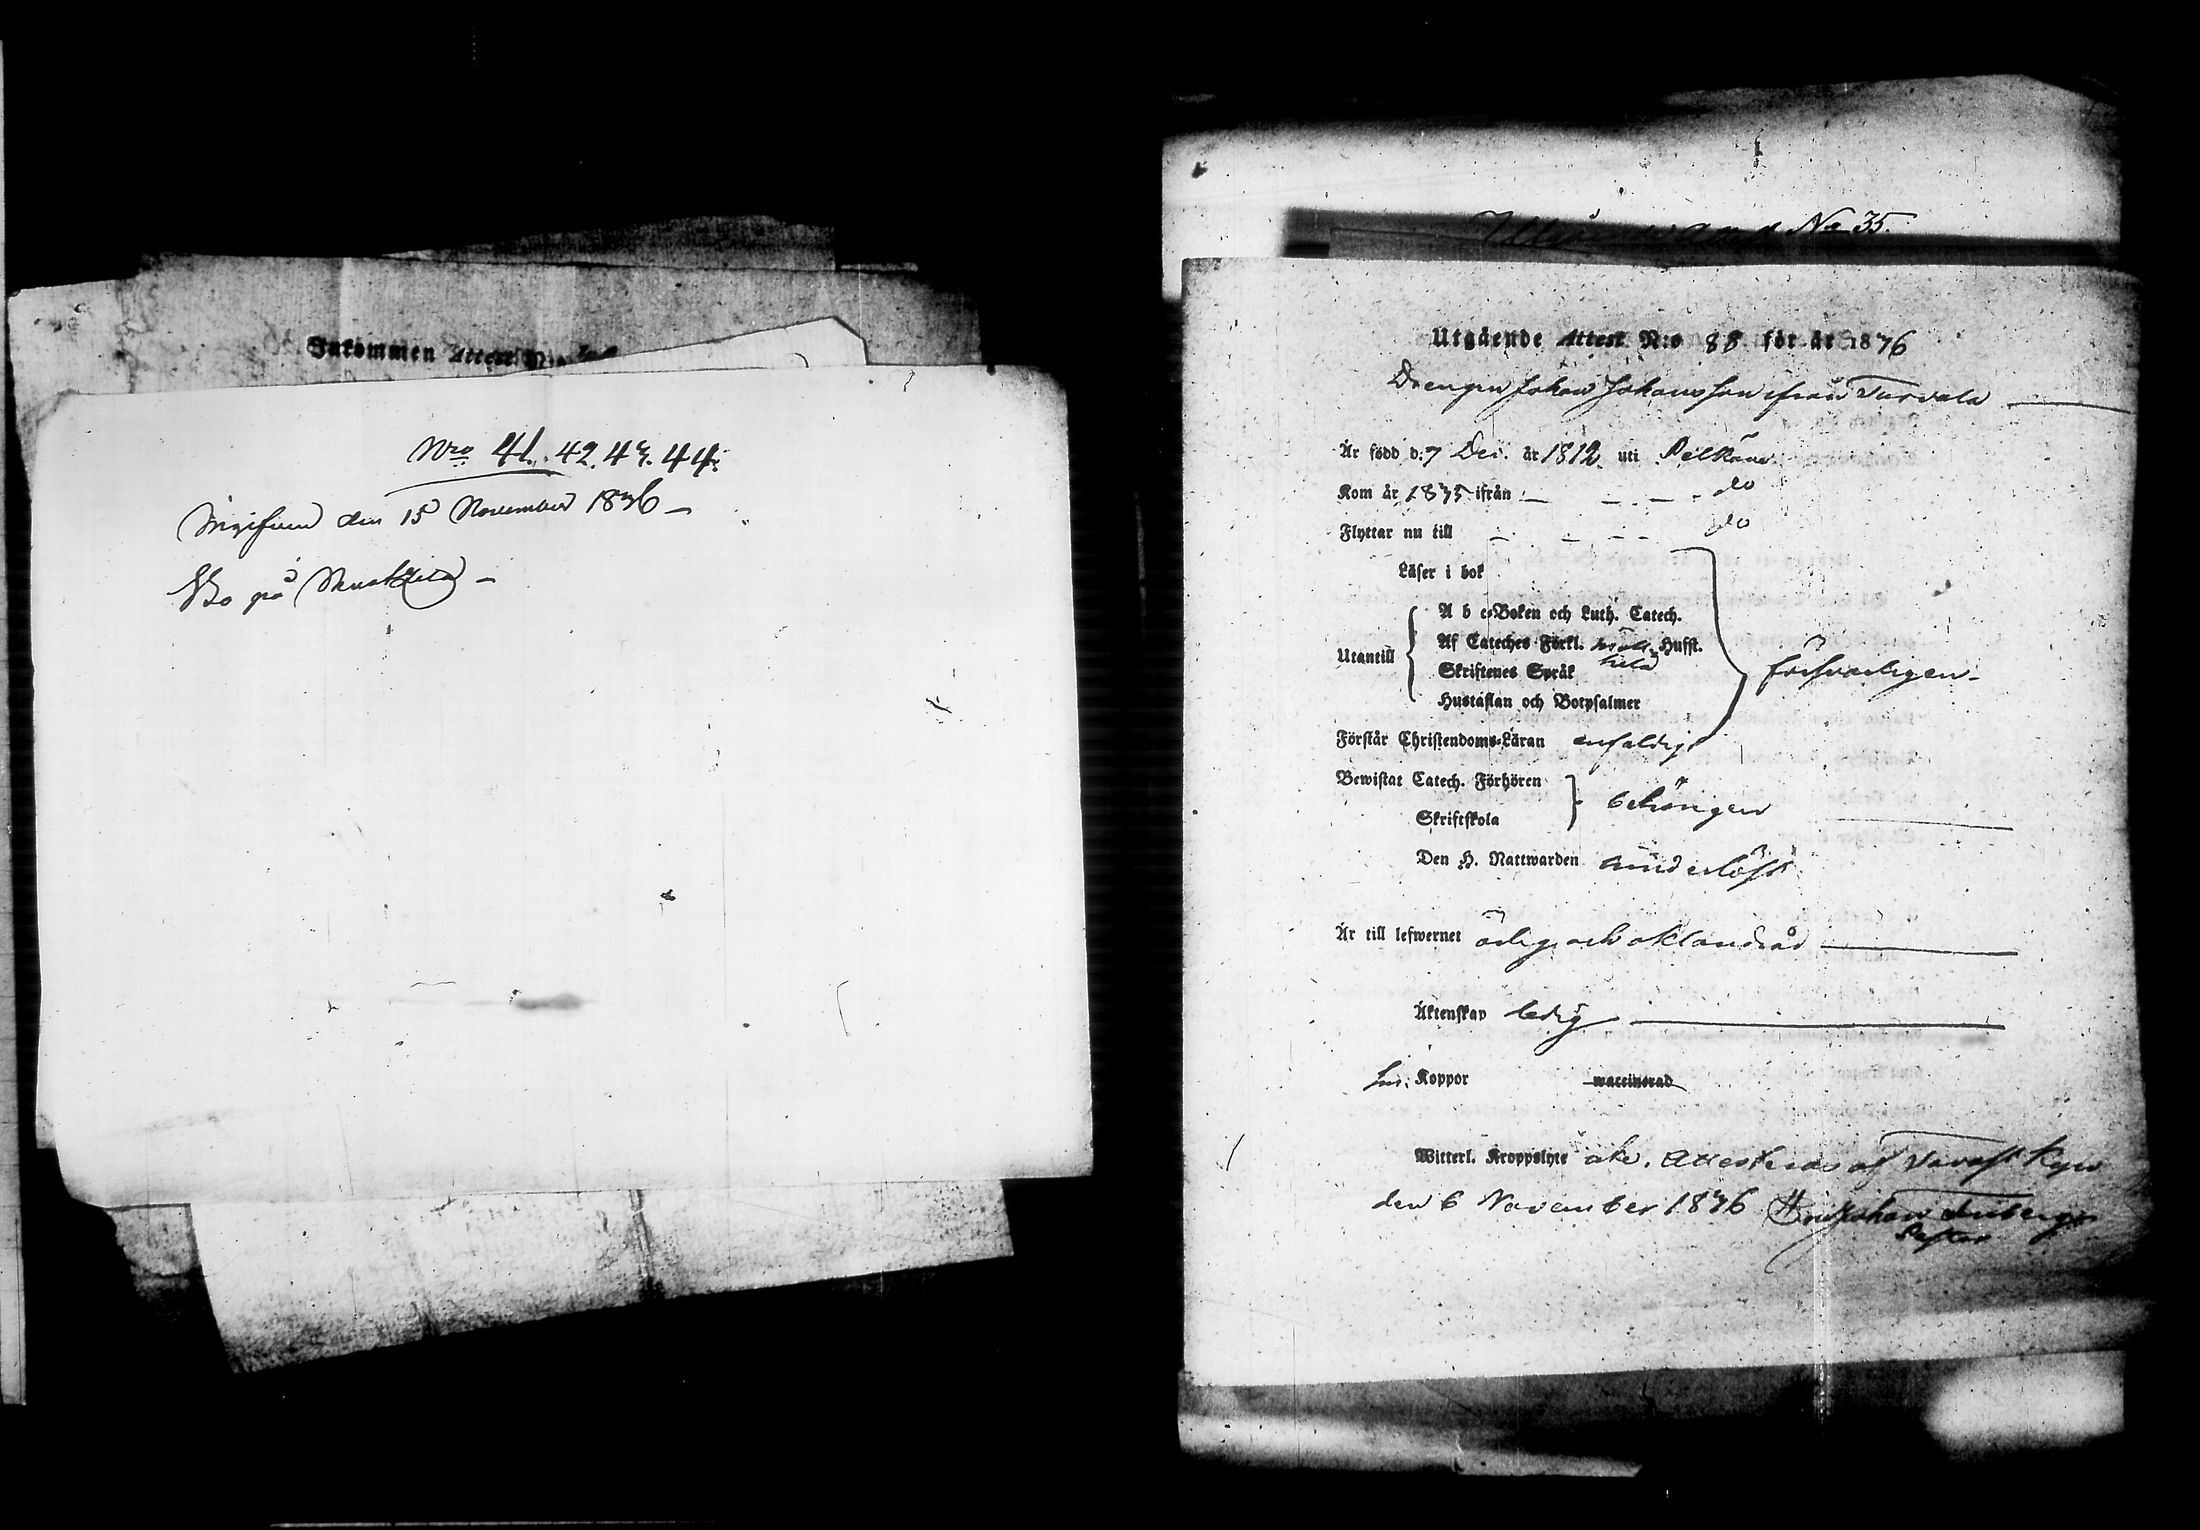 Inkommen Attest N:o
Nro 41. 42. 43. 44.
den 15 November 1836 –
Bo på –
No 35.
Utgående Attest N:o 88 för år 1836
Drengen Johan Johansson ifrån Turvala
Är född d. 7 Dec. år 1812 uti Pelkäne
Kom år 1835 ifrån – – – – do
Flyttar nu till – – – – do
Läser i bok
A b c-Boken och Luth. Catech.
Utantill Af Cateches Förkl. Hufst.
Skriftenes Språk
Hustaflan och Botpsalmer
försvarligen
Förstår Christendoms-Läran enfaldigt
Bewistat Catech. Förhören
Skriftskola
behörigen
Den H. Nattwarden
Är till lefwernet ärlig och oklandrad
Äktenskap ledig
Koppor waccinerad
Witterl. Kroppslyte Attesteras af Tavast Kyro
den 6 November 1836 Johan
Pastor